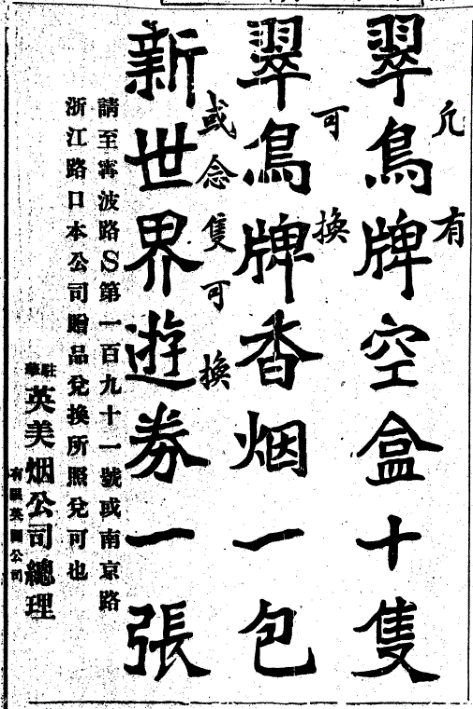 凢有
翠鳥牌空盒十隻
可換
翠鳥牌香烟一包
或念隻可換
新世界遊券一張
請至甯波路S第一百九十一號或南京路
浙江路口本公司贈品兌換所照兌可也
駐華英美烟公司總理
有限英國公司